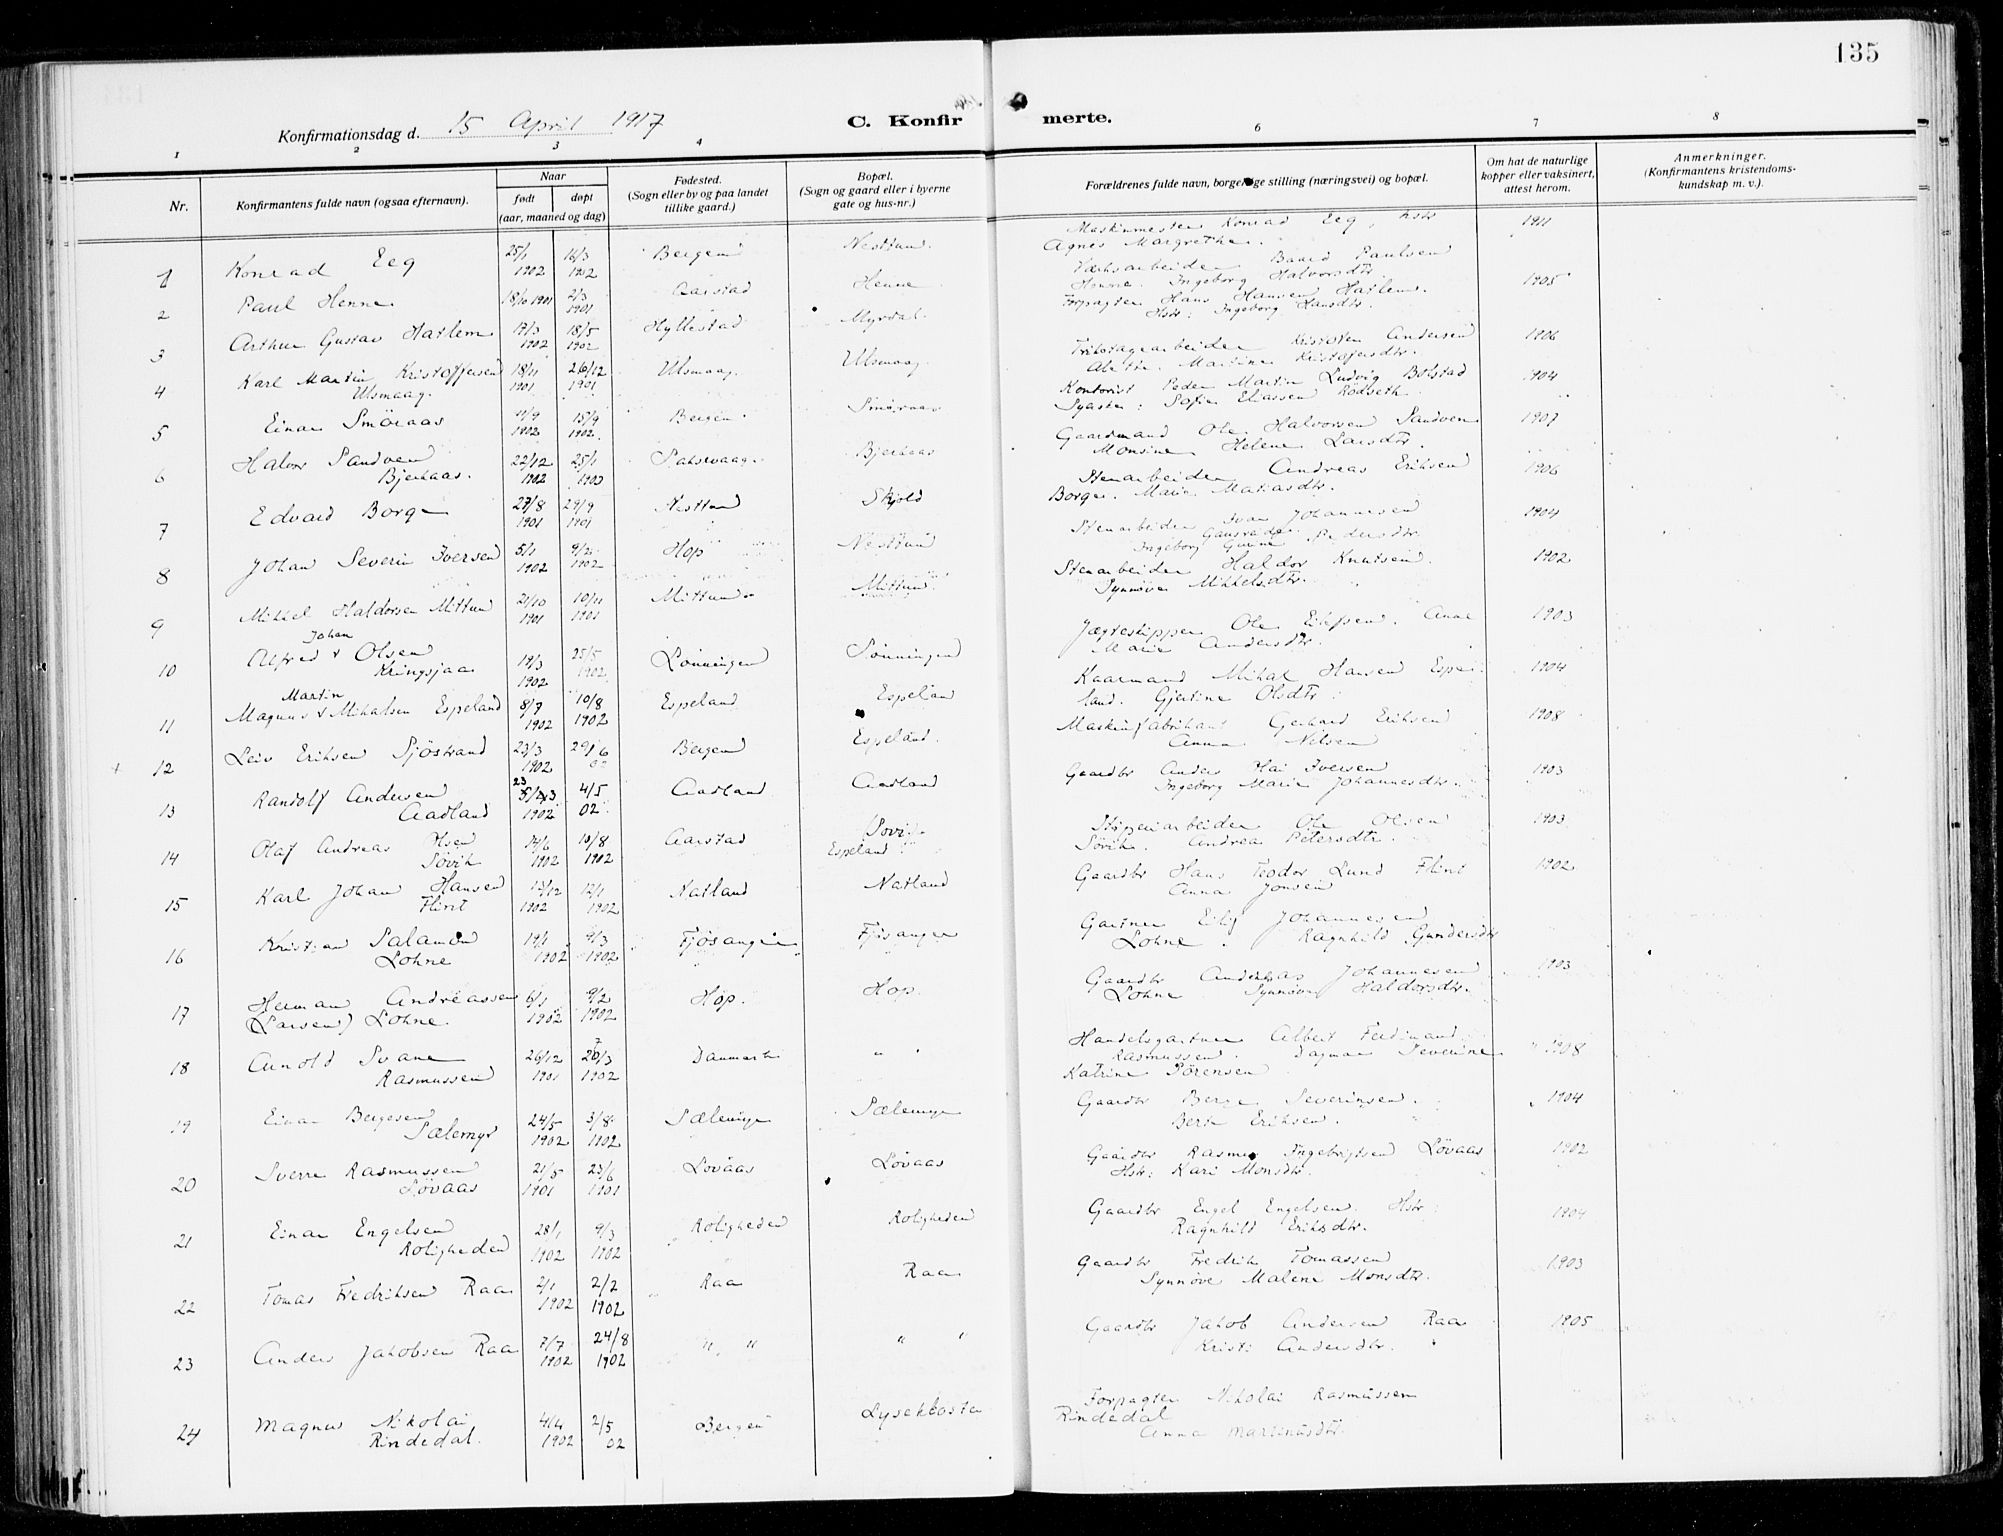 135
Konfirmationsdag d. 15 April 1917
C. Konfirmerte.
1 2 3 4 6 7 8
Nr.
Konfirmantens fulde navn (ogsaa efternavn).
Naar
født døpt
(aar, maaned og dag)
Fødested.
(Sogn eller by og paa landet
tillike gaard.)
Bopæl.
(Sogn og gaard eller i byerne
gate og hus-nr.)
Forældrenes fulde navn, borgerlige stilling (næringsvei) og bopæl.
Om hat de naturlige
kopper eller vaksinert,
attest herom.
Anmerkninger.
(Konfirmantens kristendoms-
kundskap m. v.).
1 Konrad Eeg 25/1 1902 16/3 1902 Bergen Nesttun. Maskinmester Konrad Eeg, Hstr 1911
Agnes Margrethe.
2 Paul Henne 18/10 1901 2/3 1901 Aarstad Henne Værksarbeider Baard Paulsen 1905
Henne. Ingeborg Halvorsdtr.
3 Arthur Gustav Hatlem 17/3 1902 18/5 1902 Hyllestad Myrdal. Forpagter Hans Hansen Hatlem. 1906
Hstr: Ingeborg Hansdtr.
4 Karl Martin Kristoffersen 18/11 1901 26/12 1901 Ulsmaag. Ulsmaag. Trikotagearbeider Kristoffer Andersen 1904
Ulsmaag. Martine Kristofersdtr.
5 Einar Smöraas 11/9 1902 15/9 1902 Bergen Smöraas Kontorist Peder Martin Ludvig Bolstad 1907
Syerske: Sofie Eliassen Rödseth
6 Halvor Sandven 22/12 1902 25/1 1903 Bjerkaas Gaardmand Ole Halvorsen Sandven 1906
Bjerkaas. Monsine Helene Larsdtr.
7 Edvard Borge 27/8 1901 29/9 1901 Nesttun Skjold Stenarbeider Andreas Eriksen 1904
Borge. Marie Matiasdtr.
8 Johan Severin Iversen 5/1 1902 9/2 1902 Hop Nesttun Stenarbeider Ivar Johannesen 1902
Ingeborg Gurine Pedersdtr.
9 Mikkel Haldorsen Mittun 21/10 1901 10/11 1901 Mittun Mittun Stenarbeider Haldor Knutsen.
Synnöve Mikkelsdtr.
10 Alfred Johan Olsen 19/3 1902 25/5 1902 Lønningen Lønningen Jægteskipper Ole Eilefsen. Anne 1903
Kringsjaa Marie Andersdtr.
11 Magnus Martin Mihalsen Espeland 8/7 1902 10/8 1902 Espeland Espeland Kaarmand Mihal Hansen Espe- 1904
land. Gjertine Olsdtr
12 Leiv Eriksen Sjöstrand 23/3 1902 29/6 02 Bergen Espeland. Maskinfabrikant Gerhard Eriksen 1908
Anna Nilsen
13 Randolf Andersen 23/3 1902 4/5 02 Aadland Aadland Gaardbr Anders Olai Iversen 1903
Aadland Ingeborg Marie Johannesdtr.
14 Olaf Andreas Olsen 14/6 1902 10/8 1902 Aarstad Espeland Støperiarbeider Ole Olsen 1903
Sövik Sövik. Andrea Petersdtr.
15 Karl Johan Hansen 13/12 1902 12/1 1902 Natland Natland Gaardbr Hans Teodor Lund Flint 1902
Flint Anna Jonsen
16 Kristian Salamon 19/1 1902 9/3 1902 Fjösanger Fjösanger Gartner Eilif Johannesen
Lohne Lohne. Ragnhild Gundersdtr
17 Herman Andreassen 6/1 1902 9/2 1902 Hop. Hop. Gaardbr Andreas Johannesen 1903
(Larsen) Lohne. Lohne Synnöve Haldorsdtr.
18 Arnold Svane 26/12 1901 20/3 1902 Danmark " " Handelsgartner Albert Ferdinand 1908
Rasmussen Rasmussen. Dagmar Severine
Katrine Sörensen
19 Einar Bergesen 24/5 1902 3/8 1902 Sælemyr Sælemyr Gaardbr Berge Severinsen. 1904
Sælemyr Berte Eriksen.
20 Sverre Rasmussen 21/5 1901 23/6 1901 Lövaas Lövaas Gaardbr Rasmus Ingebrigtsen Lövaas 1902
Lövaas Hstr: Kari Monsdtr.
21 Einar Engelsen 28/1 1902 9/3 1902 Roligheden Roligheden Gaardbr Engel Engelsen. Hstr: 1904
Roligheden Ragnhild Eriksdtr.
22 Tomas Fredriksen Raa 2/1 1902 2/2 1902 Raa Raa Gaardbr Fredrik Tomassen 1903
Synnöve Malene Monsdtr.
23 Anders Jakobsen Raa 7/7 1902 24/8 1902 " " " " Gaardbr Jakob Andersen Raa 1905
Kristi Andersdtr.
24 Magnus Nikolai 4/4 1902 2/5 02 Bergen Lysekloster Forpagter Nikolai Rasmussen
Rindedal. Rindedal
Anna Martinusdtr.